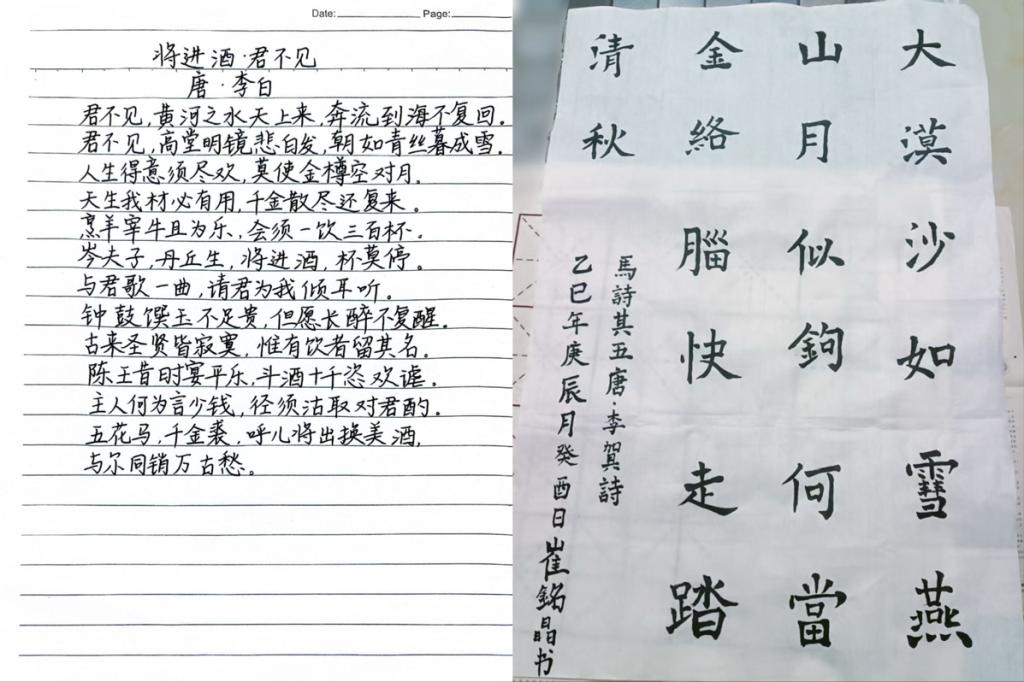 Date: Page:
将进酒·君不见
唐·李白
君不见,黄河之水天上来,奔流到海不复回.
君不见,高堂明镜悲白发,朝如青丝暮成雪.
人生得意须尽欢,莫使金樽空对月.
天生我材必有用,千金散尽还复来.
烹羊宰牛且为乐,会须一饮三百杯.
岑夫子,丹丘生,将进酒,杯莫停.
与君歌一曲,请君为我倾耳听.
钟鼓馔玉不足贵,但愿长醉不复醒.
古来圣贤皆寂寞,惟有饮者留其名.
陈王昔时宴平乐,斗酒十千恣欢谑.
主人何为言少钱,径须沽取对君酌.
五花马,千金裘,呼儿将出换美酒,
与尔同销万古愁。
大漠沙如雪燕
山月似鉤何當
金絡腦快走踏
清秋
馬詩其五唐·李賀詩
乙巳年庚辰月癸酉日崔銘晶书